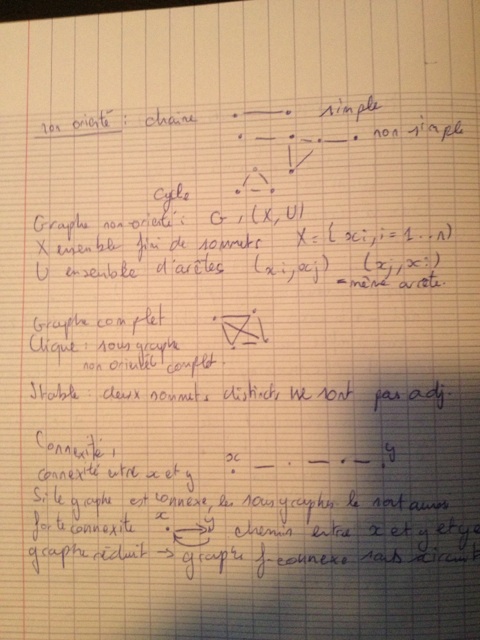 non orienté : chaine simple
non simple
Cycle
Graphe non-orienté : G, (X, U)
X ensemble fini de sommets X = (xi, i = 1...n)
U ensemble d'arêtes (xi, xj) (xj, xi)
= même arête.
Graphe complet
Clique : sous graphe
non orienté complet.
Stable : deux sommets distincts ne sont pas adj.
Connexité :
x y
connexité entre x et y
Si le graphe est connexe, les sous graphes le sont aussi
forte connexité x y chemin entre x et y et y
graphe réduit → graphe f-connexe sans circuit